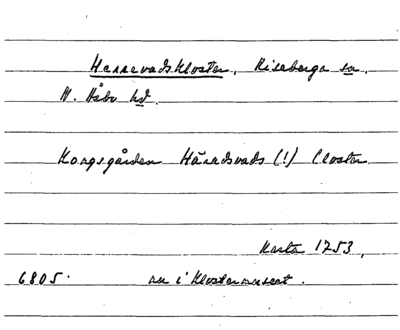 Herrevadskloster, Riseberga sn.
N. Åsbo hd.
Kongsgården Häradsvads (!) Closter
Karta 1753,
6805. nu i Klostermuseet.